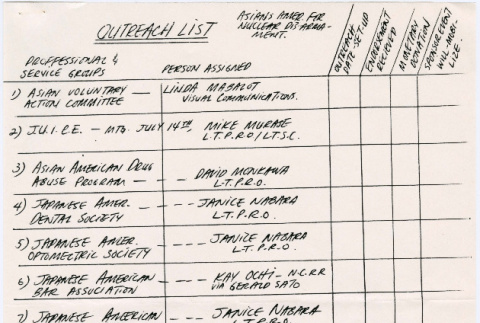 OUTREACH LIST
ASIANS AMER. FOR
NUCLEAR DISARMA-
MENT.
OUTREACH
DATE-SET-UP
ENDORSEMENT
RECIEVED
MONETARY
DONATION
SPONSOR EVENT
WILL-MOBI-
LIZE.
PROFFESSIONAL &
SERVICE GROUPS
PERSON ASSIGNED
1) ASIAN VOLUNTARY — LINDA MABALOT
ACTION COMMITTEE VISUAL COMMUNICATIONS.
2) J.U.I.C.E. — MTG. JULY 14TH, MIKE MURASE
L.T.P.R.O/L.T.S.C.
3) ASIAN AMERICAN DRUG
ABUSE PROGRAM — — — DAVID MONKAWA
L.T.P.R.O.
4) JAPANESE AMER. — — — JANICE NABARA
DENTAL SOCIETY L.T.P.R.O.
5) JAPANESE AMER. — — — JANICE NABARA
OPTOMETRIC SOCIETY L.T.P.R.O.
6) JAPANESE AMERICAN — — — KAY OCHI - N.C.R.R
BAR ASSOCIATION VIA GERALD SATO
7) JAPANESE AMERICAN JANICE NABARA